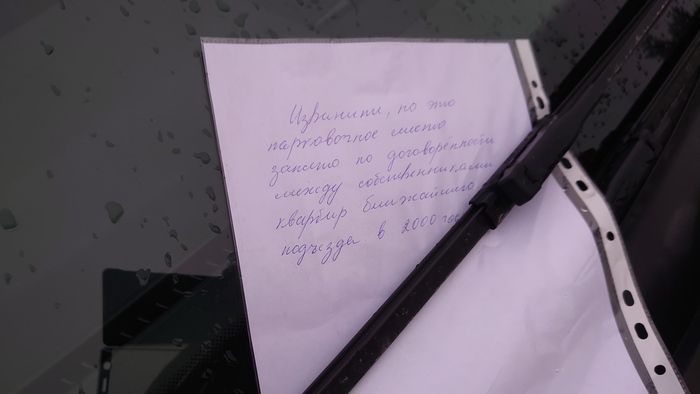 Извините, но это
парковочное место
занято по договорённости
между собственниками
квартир ближайшего
подъезда в 2000